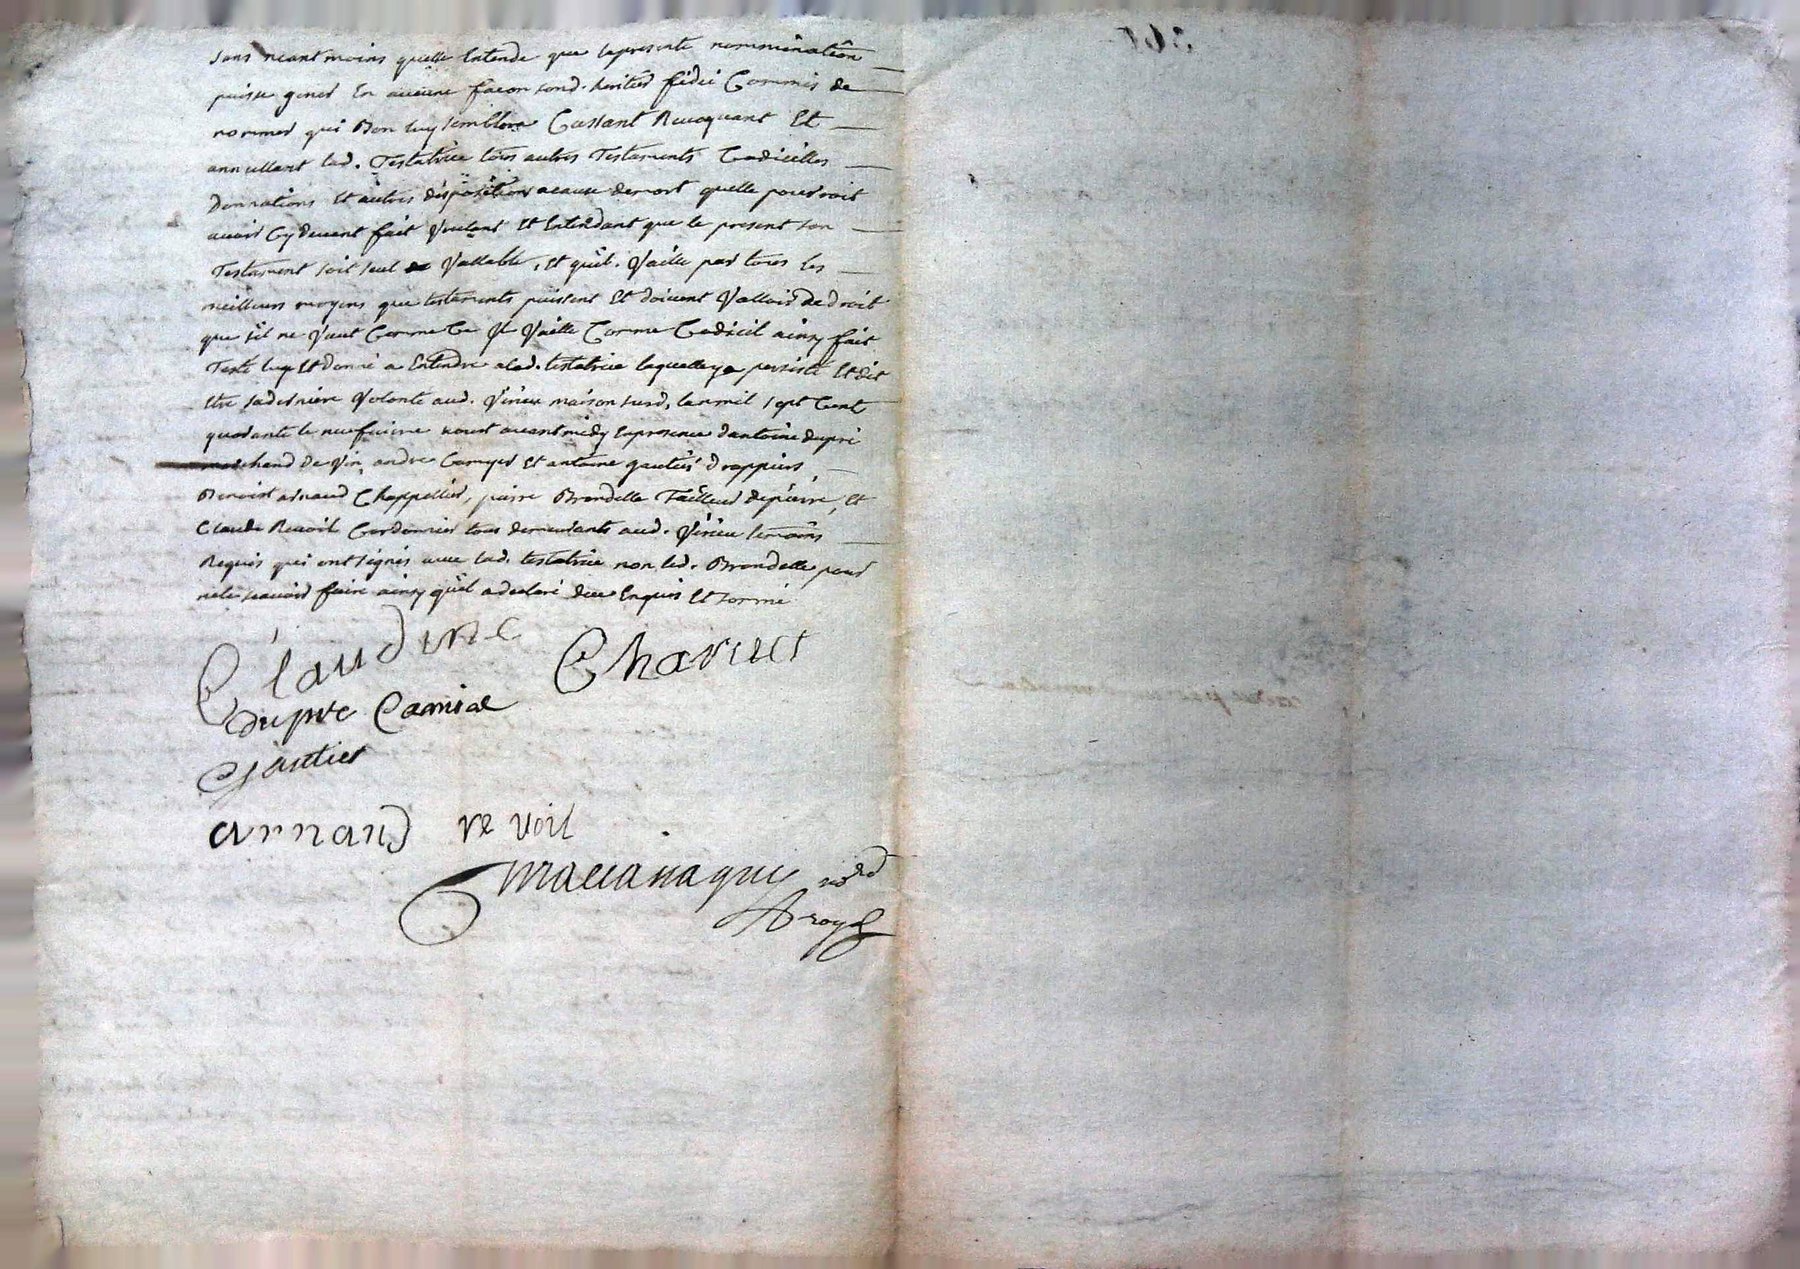 sans neantmoins quelle Entende que lapresente nommination
puisse gener En aucune facon sond. heritier fidei Commis de
nommer qui Bon luy semblera Cassant Revoquant Et
annullant lad. Testatrice tous autres Testaments Codicilles
Donnations Et autres dispositions acause demort quelle pourroit
avoir Cy Devent fait Voulant Et Entendant que le present son
Testament soit seul Vallable, Et quil Vaille par tous les
meilleurs moyens que testaments puissent Et doivent Valloir de droit
que sil ne Vaut Comme Ce Il Vaille Comme Codicil ainsy fait
Testé luy Et donné a Entendre alad. testatrice laquelle ya persisté Et dit
Etre saderniere Volonte aud. Virieu maison susd, lan mil sept Cent
quarante le neufvieme aoust avant midy Enpresence dantoine dupré
marchand De Vin, andre Camyer Et antoine gautier drappiers,
Benoist arnaud Chappellier, pierre Brondelle Tailleur depierre, Et
Claude Revoil Cordonnier tous demeurants aud. Virieu temoins
Requis qui ont signés avec lad. testatrice non led. Brondelle pour
nele scavoir faire ainsy quil a declaré de ce Enquis Et sommé
Claudine Charvet
dupre Camier
Gautier
arnaud re voil